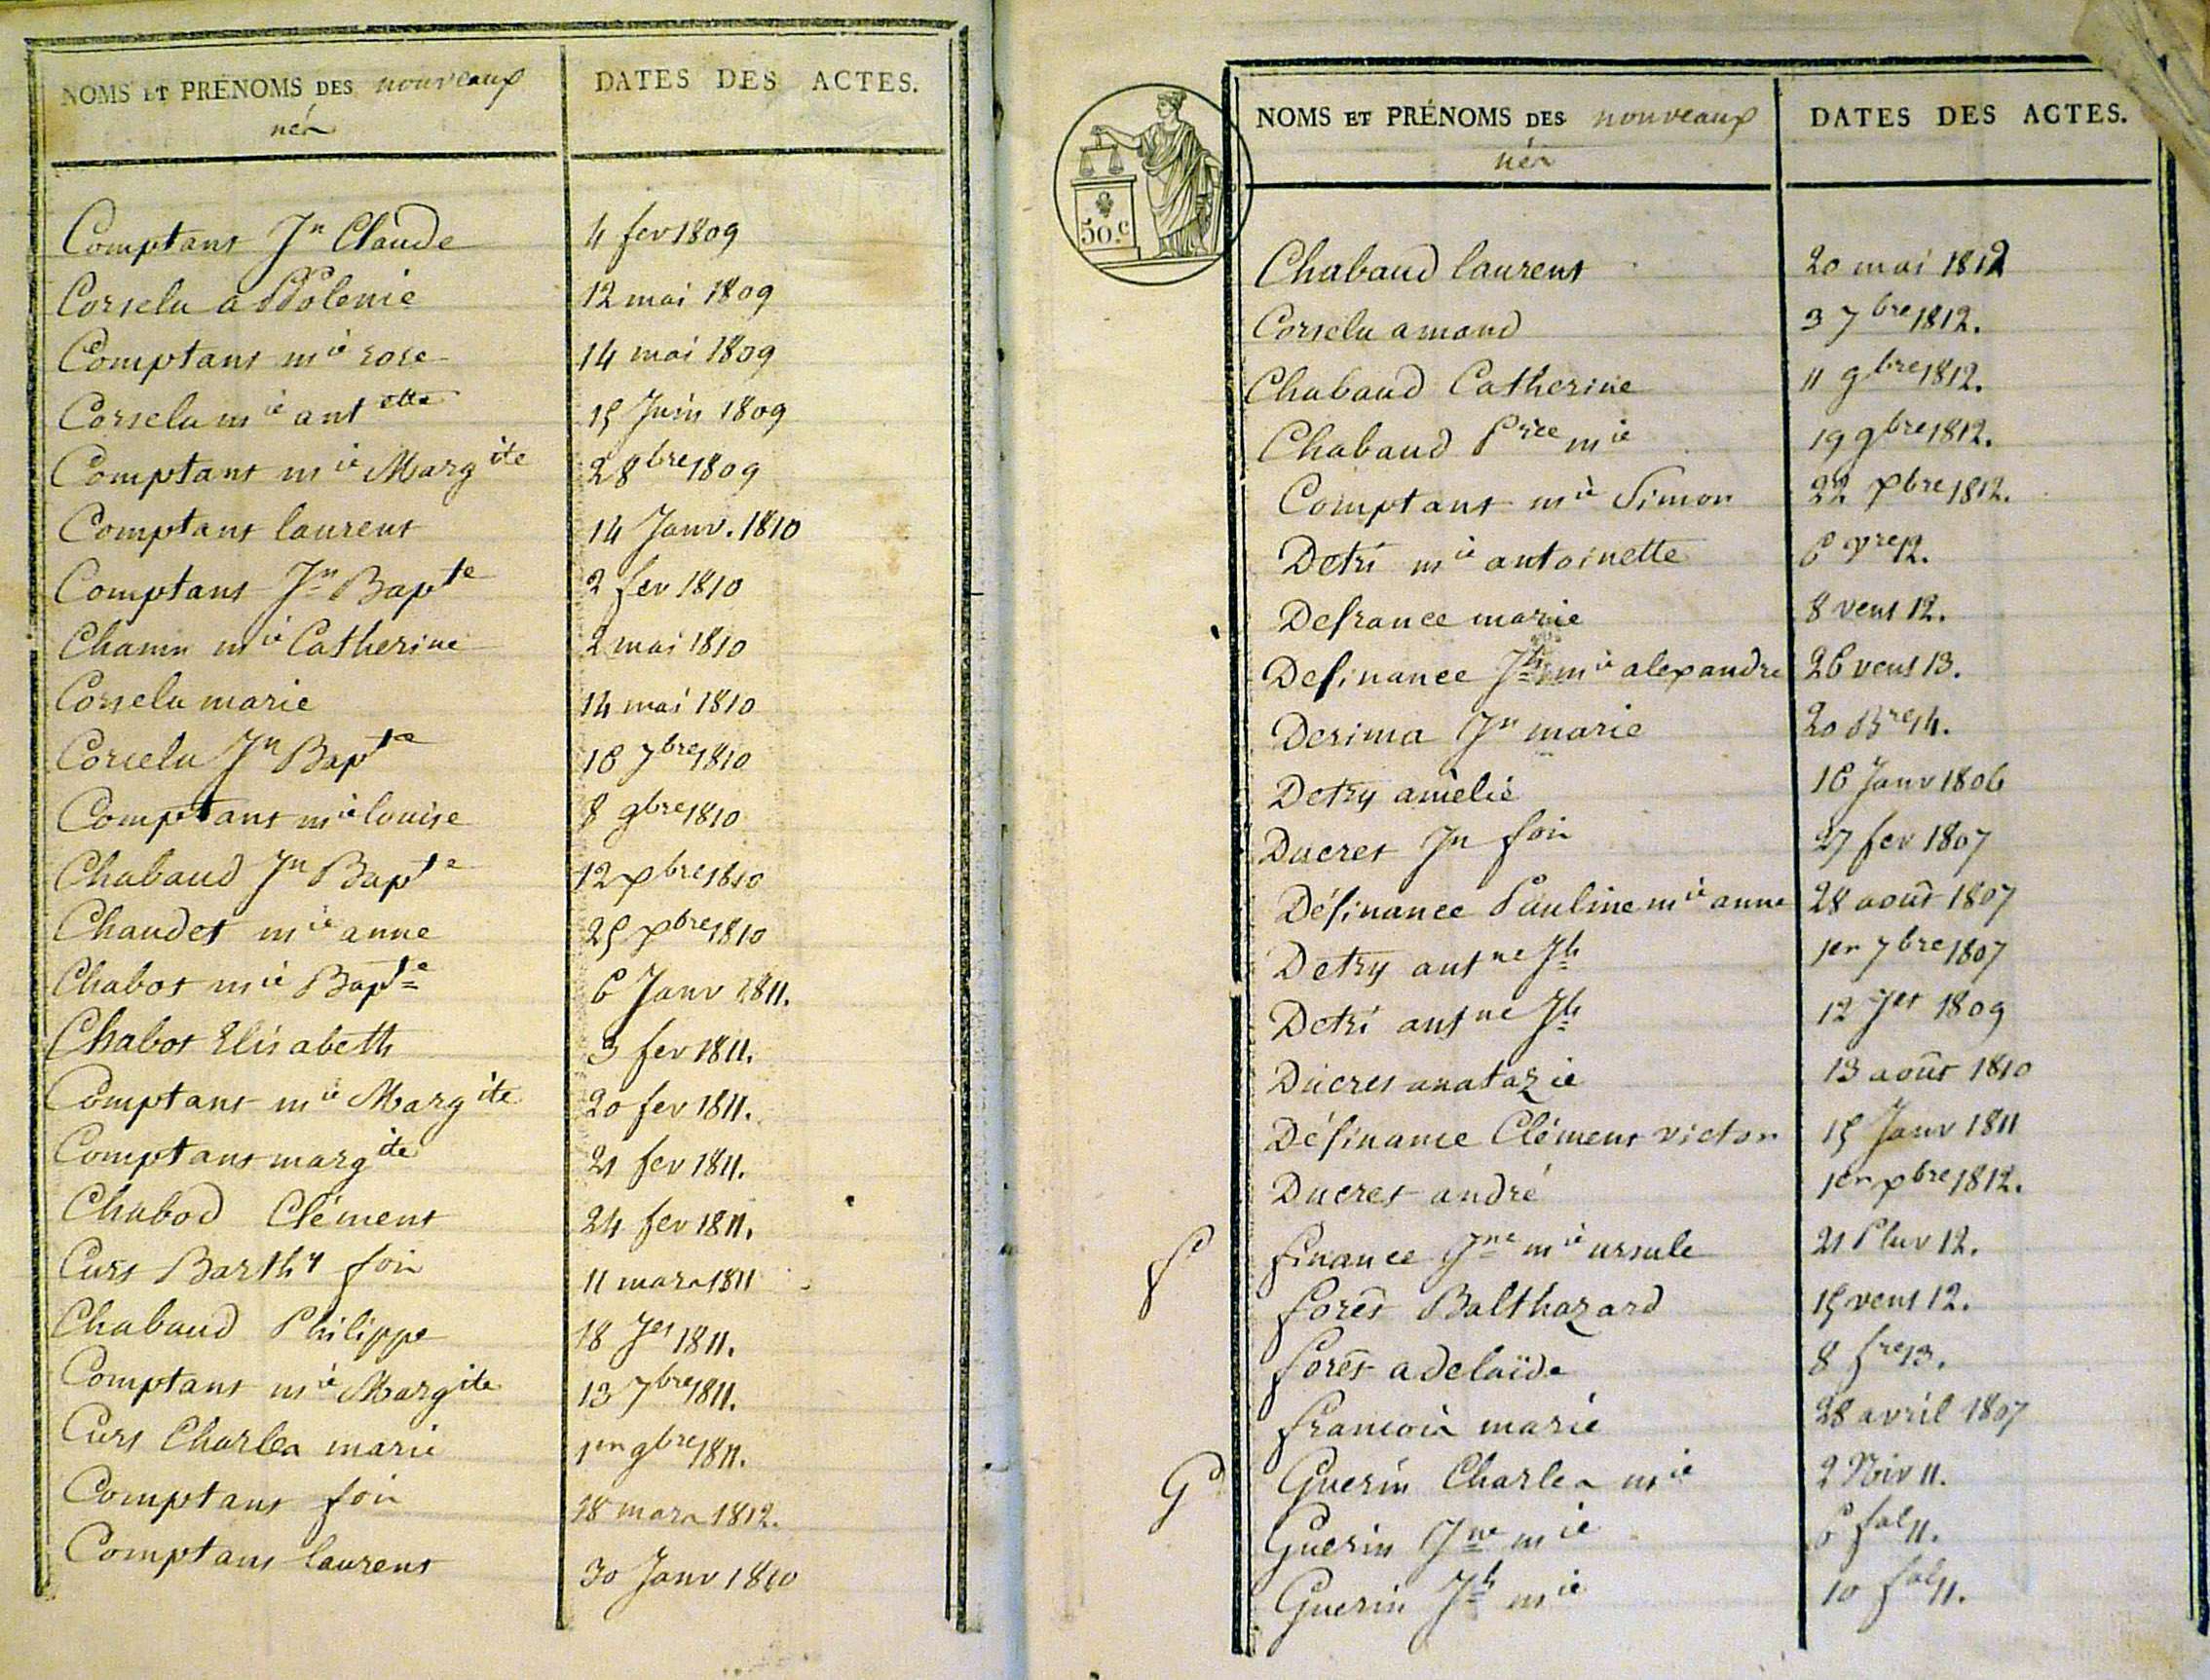 NOMS ET PRÉNOMS DES nouveaux
nés
DATES DES ACTES.
Comptans Jn Claude 4 fev 1809
Corselu appolenie 12 mai 1809
Comptans mie rose 14 mai 1809
Corselu mie antette 15 Juin 1809
Comptans mie Margite 28bre 1809
Comptans laurens 14 Janv. 1810
Comptans Jn Bapte 2 fev 1810
Chamn mie Catherine 2 mai 1810
Corselu marie 14 mai 1810
Corcelu Jn Bapte 16 7bre 1810
Comptans mie louise 8 9bre 1810
Chabaud Jn Bapte 12 xbre 1810
Chaudet mie anne 25 xbre 1810
Chabot mie Bapte 6 Janv 1811.
Chabot Elisabeth 3 fev 1811.
Comptans mie Margite 20 fev 1811.
Comptans margite 21 fev 1811.
Chabod Clément 24 fev 1811.
Curs Barthy fois 11 mars 1811
Chabaud Philippe 18 Jet 1811.
Comptans mie Margite 13 7bre 1811.
Curs Charles marie 1er 9bre 1811.
Comptans fois 18 mars 1812.
Comptans laurens 30 Janv 1810
50.c
NOMS ET PRÉNOMS DES nouveaux
nés
DATES DES ACTES.
Chabaud laurent 20 mai 1812
Corselu amand 3 7bre 1812.
Chabaud Catherine 11 9bre 1812.
Chabaud mie 19 9bre 1812.
Comptans mie Simon 22 xbre 1812.
Detri mie antoinette 6 vre 12.
Defrance marie 8 vent 12.
Definance Jh mie alexandre 26 vent 13.
Derima Jn marie 20 Bre 14.
Detry amèlie 16 Janv 1806
Ducret Jn fois 27 fev 1807
Définance Pauline mie anne 28 août 1807
Detry antne Jh 1er 7bre 1807
Detri antne Jh 12 Jet 1809
Ducret anatazie 13 août 1810
Définance Clément victor 15 Janv 1811
Ducret andré 1er xbre 1812.
F finance Jne mie ursule 21 Pluv 12.
forêt Balthazard 15 vent 12.
forêt adelaïde 8 fre 13.
francois marie 28 avril 1807
G Guerin Charles mie 2 Niv 11.
Guerin Jne mie 6 fal 11.
Guerin Jh mie 10 fal 11.